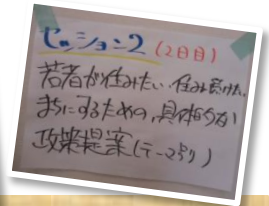 セッション2 (2日目)
若者が住みたい、住み続けたい
まちにするための、具体的な
政策提案(テーマ別り)